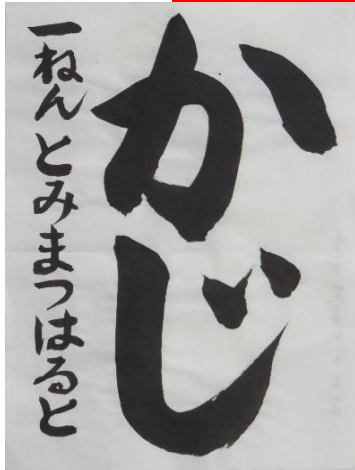 かじ
一ねんとみまつはると